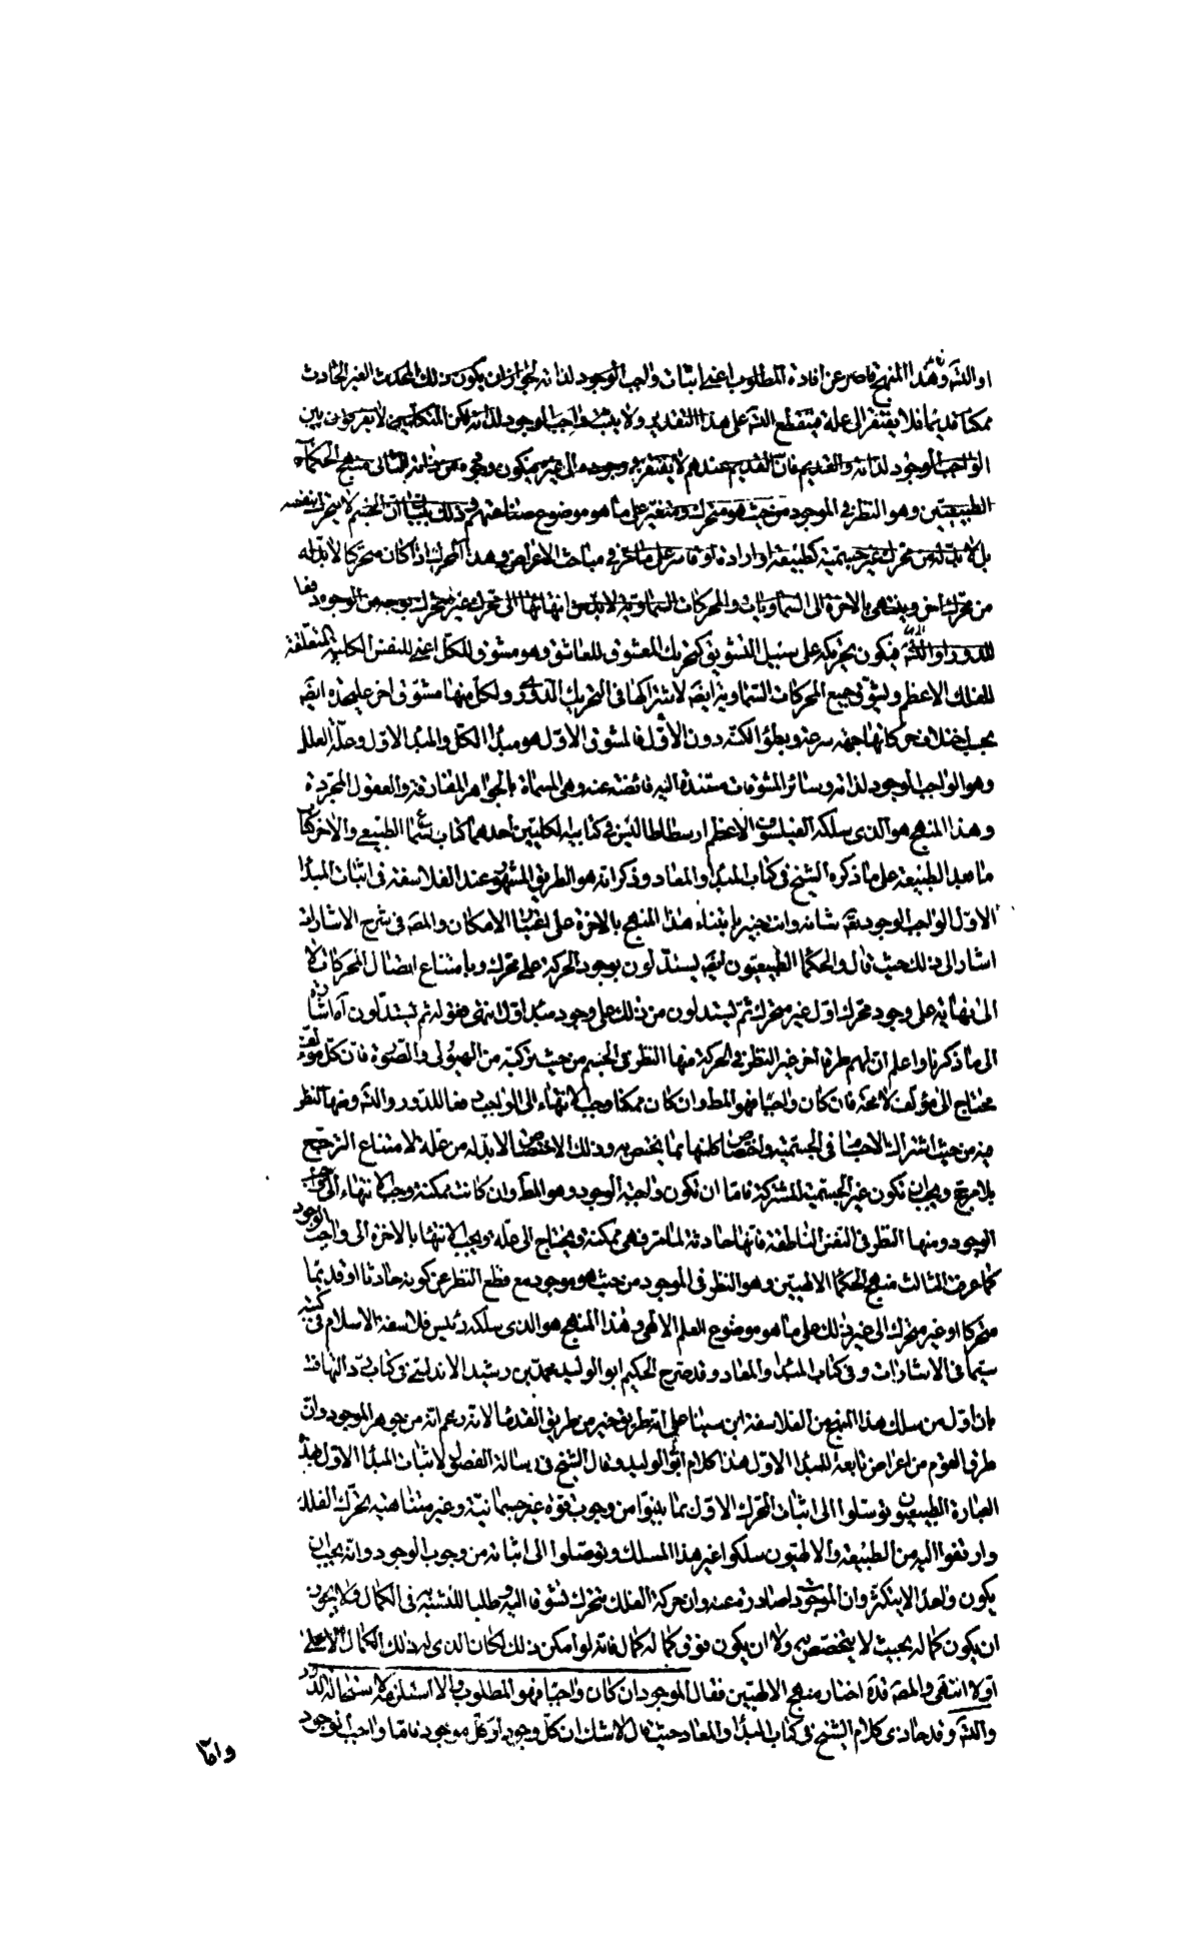 او التسّ وهذا المنهج قاصر عن افادة المطلوب اعنى اثبات واجب الوجود لذاته لجواز ان يكون ذلك المحدث الغير الحادث
ممكنا قديما فلا يفتقر الى علة فينقطع التسّ على هذا التقدير ولا يثبت واجب الوجود لذاته لكن المتكلمين لا يفرقون بين
الواجب الوجود لذاته والقديم فان القديم عندهم لا يفتقر فى وجوده الى غيره فيكون وجوده من ذاته الثانى منهج الحكماء
الطبيعيين وهو النظر فى الموجود من حيث هو متحرك ومتغير على ما هو موضوع صناعتهم وذلك باثبات ان الجسم لا يتحرك بنفسه
بل لا بد له من محرك غير جسميته كطبيعة او ارادة او قاسر على ما مر فى مباحث الاعراض وهذا المحرك اذا كان متحركا لا بد له
من محرك اخر وينتهى بالاخرة الى السماويات والمحركات السماوية لا بد من انتهائها الى محرك غير متحرك بوجه من الوجوه دفعا
للدور او التسّ فيكون تحريكه على سبيل التشويق كتحريك المعشوق للعاشق وهو مشوق للكل اعنى للنفس الكلية المتعلقة
للفلك الاعظم وليشوق جميع المحركات السماوية ايضا لاشتراكها فى التحريك الدورى ولكل منها مشوق اخر على حده ايضا
بحسب اختلاف حركاتها جهة وسرعة وبطؤا لكنه دون الأول فالمشوق الاول هو مبدا الكل والمبدا الاول وعلة العلل
وهو الواجب الوجود لذاته وسائر المشوقات مستندة اليه فائضة عنه وهى المسماة بالجواهر المفارقة والعقول المجردة
وهذا المنهج هو الذى سلكه الفيلسوف الاعظم ارسطاطاليس فى كتابيه الكليتين احدهما كتاب سمع الطبيعى والاخر كتاب
ما بعد الطبيعة على ما ذكره الشيخ فى كتاب المبدا والمعاد وذكر انه هو الطريق المشهور عند الفلاسفة فى اثبات المبدا
الاول الواجب الوجود تعه شانه وانت خبير بابتناء هذا المنهج بالاخرة على اعتبار الامكان والمصه فى شرح الاشارات
اشار الى ذلك حيث قال والحكماء الطبيعيون ايضه يستدلون بوجود الحركة على محرك وبامتناع اتصال المحركات لا
الى نهاية على وجود محرك اول غير متحرك ثم يستدلون من ذلك على وجود مبدا اول انتهى فقوله ثم يستدلون آه اشارة
الى ما ذكرنا واعلم ان لهم طرقا اخر غير النظر فى الحركة منها النظر فى الجسم من حيث تركبه من الهيولى والصورة فان كل مؤلف
محتاج الى مؤلف لا محة فان كان واجبا فهو المط وان كان ممكنا وجب الانتهاء الى الواجب دفعا للدور والتسّ ومنها النظر
فيه من حيث اشتراك الاجسام فى الجسمية واختصاص كل منها بما يختص به وذلك الاختصاص لا بد له من علة لامتناع الترجيح
بلا مرجح ويجب ان تكون غير الجسمية المشتركة فاما ان تكون واجبة الوجود وهو المط وان كانت ممكنة وجب الانتهاء الى واجب
الوجود ومنها النظر فى النفس الناطقة فانها حادثة لما مر فهى ممكنة ويحتاج الى علة ويجب الانتهاء بالاخرة الى واجب الوجود
كما عرفت الثالث منهج الحكماء الالهيين وهو النظر فى الموجود من حيث هو موجود مع قطع النظر عن كونه حادثا او قديما
متحركا او غير متحرك الى غير ذلك على ما هو موضوع العلم الالهى وهذا المنهج هو الذى سلكه رئيس فلاسفة الاسلام فى كتبه
سيما فى الاشارات وفى كتاب المبدا والمعاد وقد صرح الحكيم ابو الوليد محمد بن رشد الاندلسى فى كتاب رد التهافت
بان اول من سلك هذا المنهج من الفلاسفة ابن سينا على انه طريق خير من طريق القدماء لانه زعم انه من جوهر الموجود وان
طرق القوم من اعراض تابعة للمبدا الاول هذا كلام ابو الوليد وقال الشيخ فى رسالة الفصول لاثبات المبدا الاول هذه
العبارة الطبيعيون توسلوا الى اثبات المحرك الاول بما بينوا من وجوب قوة غير جسمانية وغير متناهية يحرك الفلك
وارتقوا اليه من الطبيعة والالهيون سلكوا غير هذا المسلك وتوصلوا الى اثباته من وجوب الوجود وانه يجب ان
يكون واحدا لا يتكثر وان الموجودات صادرة عنه وان حركة الفلك يتحرك تشوقا اليه وطلبا للتشبه فى الكمال ولا يجوز
ان يكون كماله بحيث لا يتخصص به ولا ان يكون فوق كماله كمال فانه لو امكن ذلك لكان الذى له ذلك الكمال الاعلى
اولا انتهى والمصه قده اختار منهج الالهيين فقال الموجود ان كان واجبا فهو المطلوب والا استلزمه لاستحالة الدور
والتسّ وقد حاذى كلام الشيخ فى كتاب المبدا والمعاد حيث قال لا شك ان كل وجود او كل موجود فاما واجب الوجود
واما